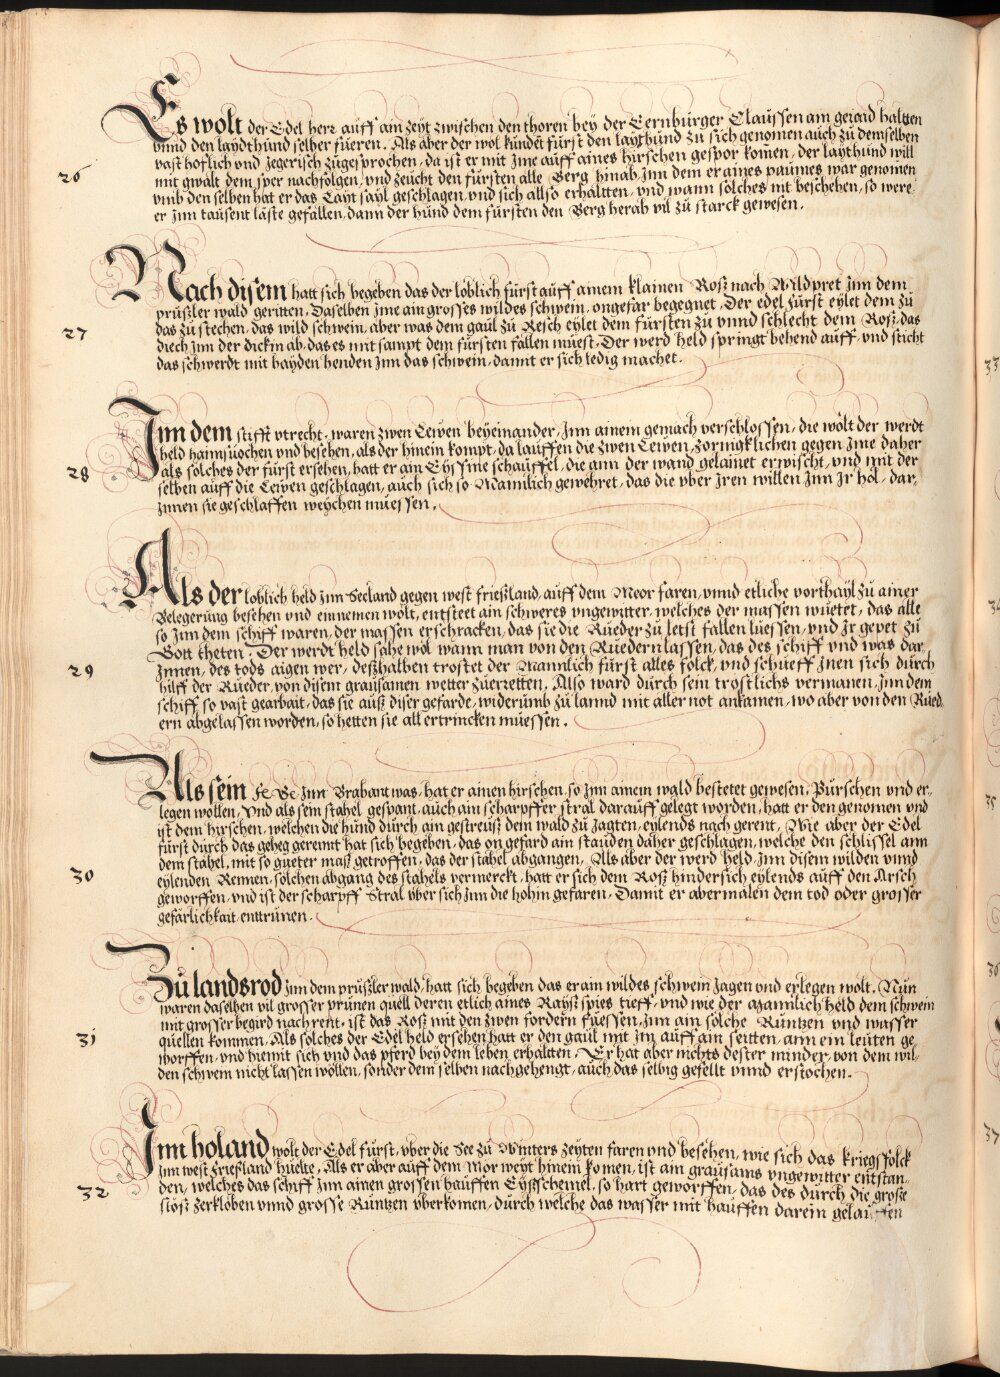 Es wolt der Edel herr auff ain zeyt zwischen den thoren bey der Cernburger Claussen am geiaid haltten
vnnd den laydthund selher fueren. Als aber der wol kundet fürst den laythund zu sich genomen auch zu demselben
vast hoflich vnd Jegerisch zugesprochen, da ist er mit Jme auff aines hirschen gespor komen, der laythund will
26
mit gwalt dem spor nachfolgen, vnd zeucht den fürsten alle Berg hinab, Jnn dem er aines paumes war genomen
vmb den selben hat er das Layt sayl geschlagen, vnd sich allso erhaltten, vnd wann solches nit beschehen, so were
er Jnn tausent laste gefallen, dann der hund dem fürsten den Berg herab vil zu starck gewesen.
Nach disem hatt sich begeben das der loblich fürst auff ainem klainen Roß nach Wildpret Jnn dem
prüßler wald geritten, Daselben Jme ain grosses wildes schwein, ongefar begegnet, Der edel fürst eylet dem zu
27
das zu stechen, das wild schwein, aber was dem gaul zu Resch eylet dem fürsten zu vnnd schlecht dem Roß, das
diech Jnn der dickin ab, das es mit sampt dem fürsten fallen muest, Der werd held springt behend auff, vnd sticht
das schwerdt mit bayden henden Jnn das schwein, damit er sich ledig machet.
Jnn dem stifft vtrecht, waren zwen Lewen beyeinander, Jnn ainem gemach verschlossen, die wolt der werdt
held haimsuochen vnd besehen, als der hinein kompt, da lauffen die zwen Lewen, zornigklichen gegen Jme daher
28
als solches der fürst ersehen, hatt er ain Eyssine schauffel, die ann der wand gelainet erwischt, vnd mit der
selben auff die Lewen geschlagen, auch sich so Manlich gewehret, das die vber Jren willen Jnn Jr hol, dar,
Jnnen sie geschlaffen weychen muessen.
Als der loblich held Jnn Seeland gegen west frießland, auff dem Moor faren, vnnd etliche vorthayl zu ainer
Belegerung besehen vnd einnemen wolt, entsteet ain schweres vngewitter, welches der massen wuetet, das alle
so Jnn dem schiff waren, der massen erschracken, das sie die Rueder zu letst fallen liessen, vnd Jr gepet zu
Gott theten. Der werdt held sahe wol wann man von den Ruedern lassen, das des schiff vnd was dar
29
Jnnen, des tods aigen wer, deßhalben trostet der Mannlich fürst alles folck, vnd schueff Jnen sich durch
hilff der Rueder, von disem grausamen wetter zuerretten. Also ward durch sein trostlichs vermanen, Jnn dem
schiff, so vast gearbait, das sie auß diser gefarde, widerumb zu lannd mit aller not ankamen, wo aber von den Rued
ern abgelassen worden, so hetten sie all ertrincken muessen.
Als sein Fe Ge Jnn Brabant was, hat er ainen hirschen, so Jnn ainem wald bestetet gewesen, Pürschen vnd er,
legen wollen, Vnd als sein stahel gespant, auch ain scharpffer stral darauff gelegt worden, hatt er den genomen vnd
ist dem hirschen, welchen die hund durch ain gestreuß dem wald zu Jagten, eylends nach gerent, Wie aber der Edel
fürst durch das geheg gerennt hat sich begeben, das on gefard ain stauden daher geschlagen, welche den schlissel ann
dem stahel, mit so gueter maß getroffen, das der stahel abgangen, Als aber der werd held Jnn disem wilden vnnd
30
eylenden Rennen, solchen abgang des stahels vermerckt, hatt er sich dem Roß hindersich eylends auff den Arsch
geworffen, vnd ist der scharpff Stral vber sich Jnn die hohin gefaren, Damit er abermalen dem tod oder grosser
gefärlichkait enttrunen.
Zu landsrod Jnn dem prüßler wald, hatt sich begeben das er ain wildes schwein Jagen vnd erlegen wolt. Nun
waren daselben vil grosser prunen quell deren etlich aines Rayß spies tieff, vnd wie der Manlich held dem schwein
mit grosser begird nach rent, ist das Roß mit den zwen fordern fuessen, Jnn ain solche Runtzen vnd wasser
31
quellen kommen, Als solches der Edel held ersehen hatt er den gaul mit Jm auff ain seitten, ann ein leuten ge
worffen, vnd hiemit sich vnd das pferd bey dem leben erhaltten, Er hat aber nichts dester minder, von dem wil,
den schwein nicht lassen wöllen, sonder dem selben nachgehengt, auch das selbig gefellt vnnd erstochen.
Jnn holand wolt der Edel fürst, vber die See zu Winters zeyten faren vnd besehen, wie sich das kriegsfolck
Jnn west frießland hielte, Als er aber auff dem Mör weyt hinein komen, ist ain grausams vngewitter entstan,
32
den, welches das schiff Jnn ainen grossen hauffen Eyßschemel, so hart geworffen, das des durch die große
stöß zerkloben vnnd grosse Runtzen vberkomen, durch welche das wasser mit hauffen darein gelauffen
33
34
35
36
37